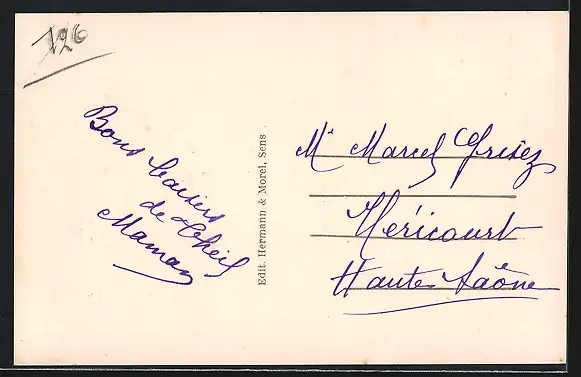 126
Bons baisers
de
Maman
Edit. Hermann & Morel, Sens
Mr Marcel Grisez
Héricourt
Haute Saône